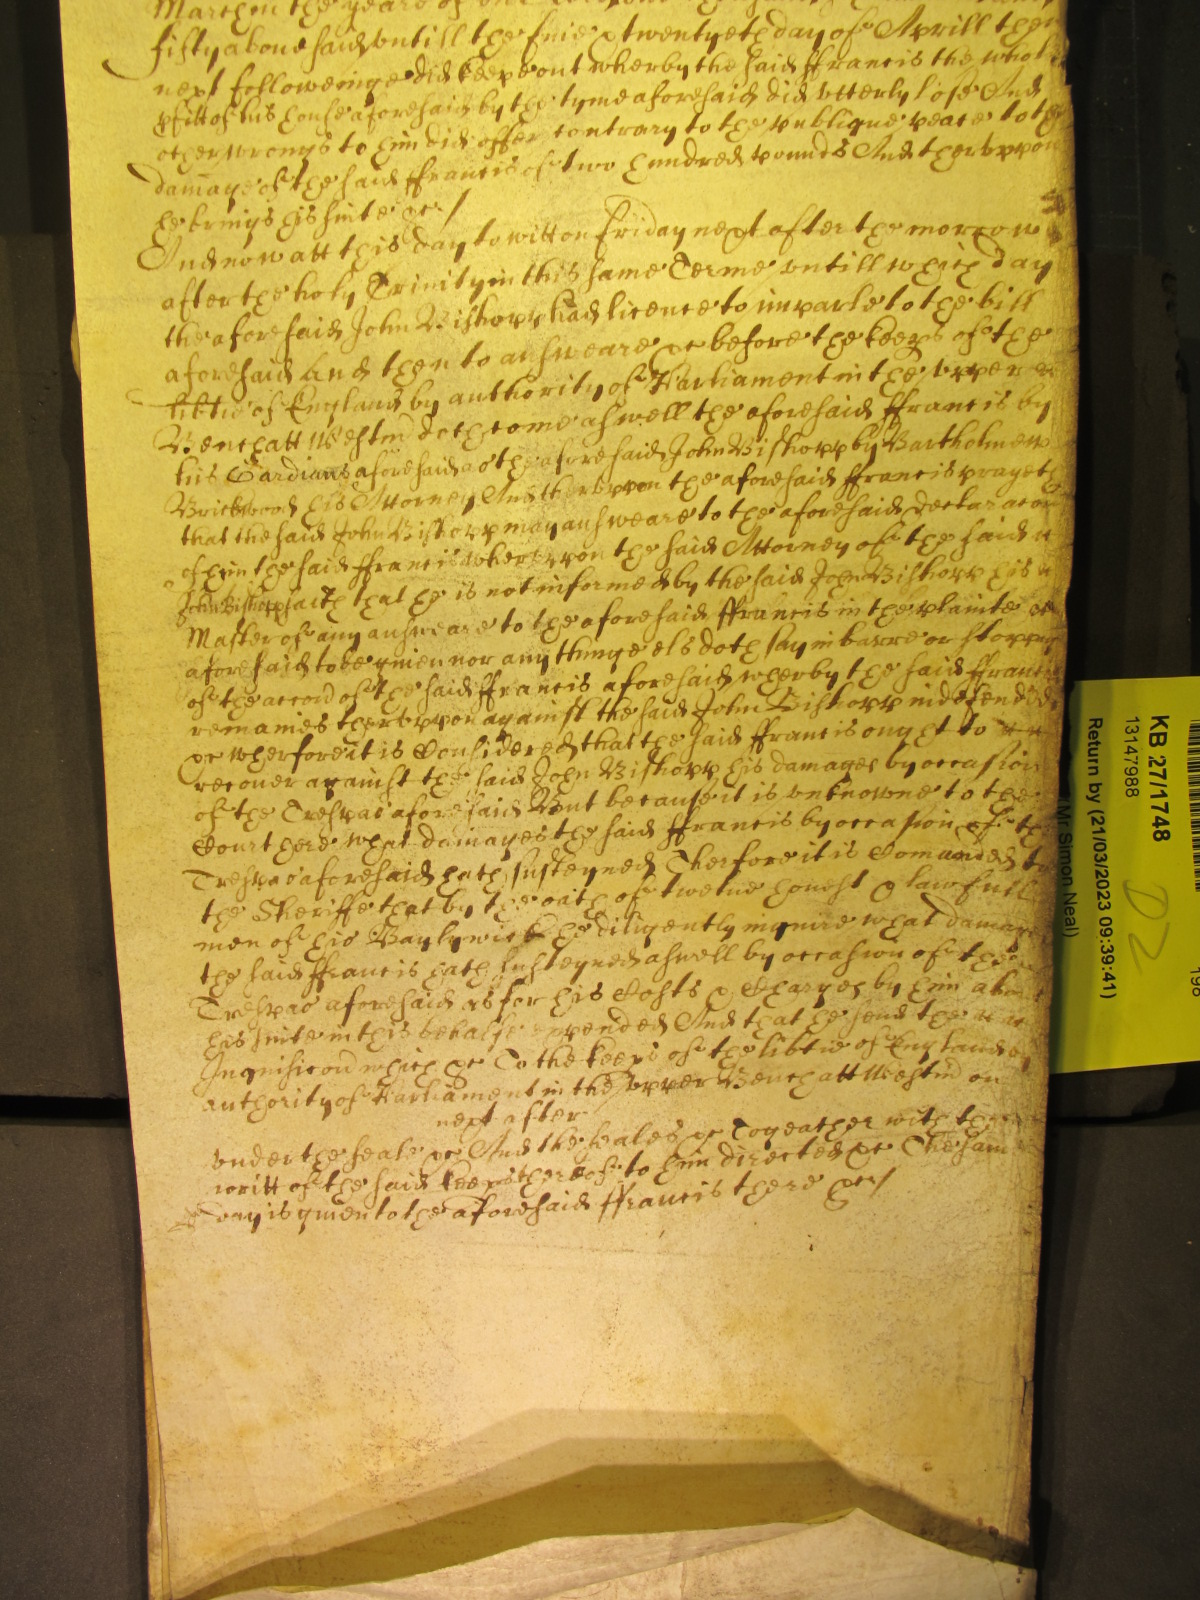 March in the yeare of our
fifty aboue said vntill the fiue & twentyeth day of Aprill then
next followeinge did keepe out wherby the said ffrancis the whole
pfitt of his house aforesaid by the tyme aforesaid did vtterly lose And
other wrongs to him did offer contrary to the publique peace to the
damage of the said ffrancis of two hundred pounds And thervppon
he brings his suite &c /
And now att this day to witt on Friday next after the morrow
after the holy Trinity in this same Terme vntill which day
the aforesaid John Bishopp had licence to imparle to the bill
aforesaid And then to answeare &c before the keeps of the
libtie of England by authority of Parliament in the vpper
Bench att Westm doth come aswell the aforesaid ffrancis by
his Gardians aforesaid as the aforesaid John Bishopp by Bartholmew
Brickwood his Attorney And thervppon the aforesaid ffrancis prayeth
that the said John Bishopp may answeare to the aforesaid declaracon
of him the said ffrancis whervppon the said Attorney of the said
John Bishopp saith that he is not informed by the said John Bishopp his
Master of any answeare to the aforesaid ffrancis in the plainte
aforesaid to be giuen nor any thinge els doth say in barre or stoppinge
of the accord of the said ffrancis aforesaid wherby the said ffrancis
remaines thervppon against the said John Bishopp indefended
&c wherfore it is Considered that the said ffrancis ought to
recouer against the said John Bishopp his damages by occasion
of the Trespas aforesaid But because it is vnknowne to the
Court here what damages the said ffrancis by occasion of the
Trespas aforesaid hath susteyned Therfore it is Comanded to
the Sheriffe that by the oath of twelue honest & lawfull
men of his Baylywick he diligently inquire what damages
the said ffrancis hath susteyned aswell by occasion of the
Trespas aforesaid as for his Costs & Charges by him about
his suite in this behalfe expended And that he send the
Inquisicon which &c To the keeps of the libtie of England by
authority of Parliament in the vpper Bench att Westm on
next after
vnder the seale &c And the seales &c Togeather with the
writt of the said keeps therof to him directed &c The same
day is giuen to the aforesaid ffrancis there &c /
KB 27/1748
13147988
Return by (21/03/2023 09:39:41)
Mr Simon Neal)
D2
198